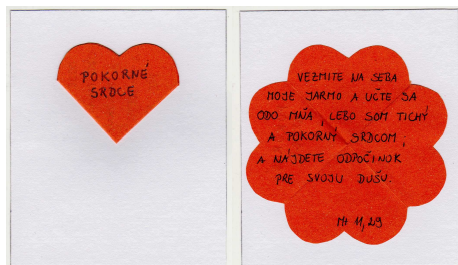 POKORNÉ
SRDCE
VEZMITE NA SEBA
MOJE JARMO A UČTE SA
ODO MŇA, LEBO SOM TICHÝ
A POKORNÝ SRDCOM,
A NÁJDETE ODPOČINOK
PRE SVOJU DUŠU.
Mt 11,29